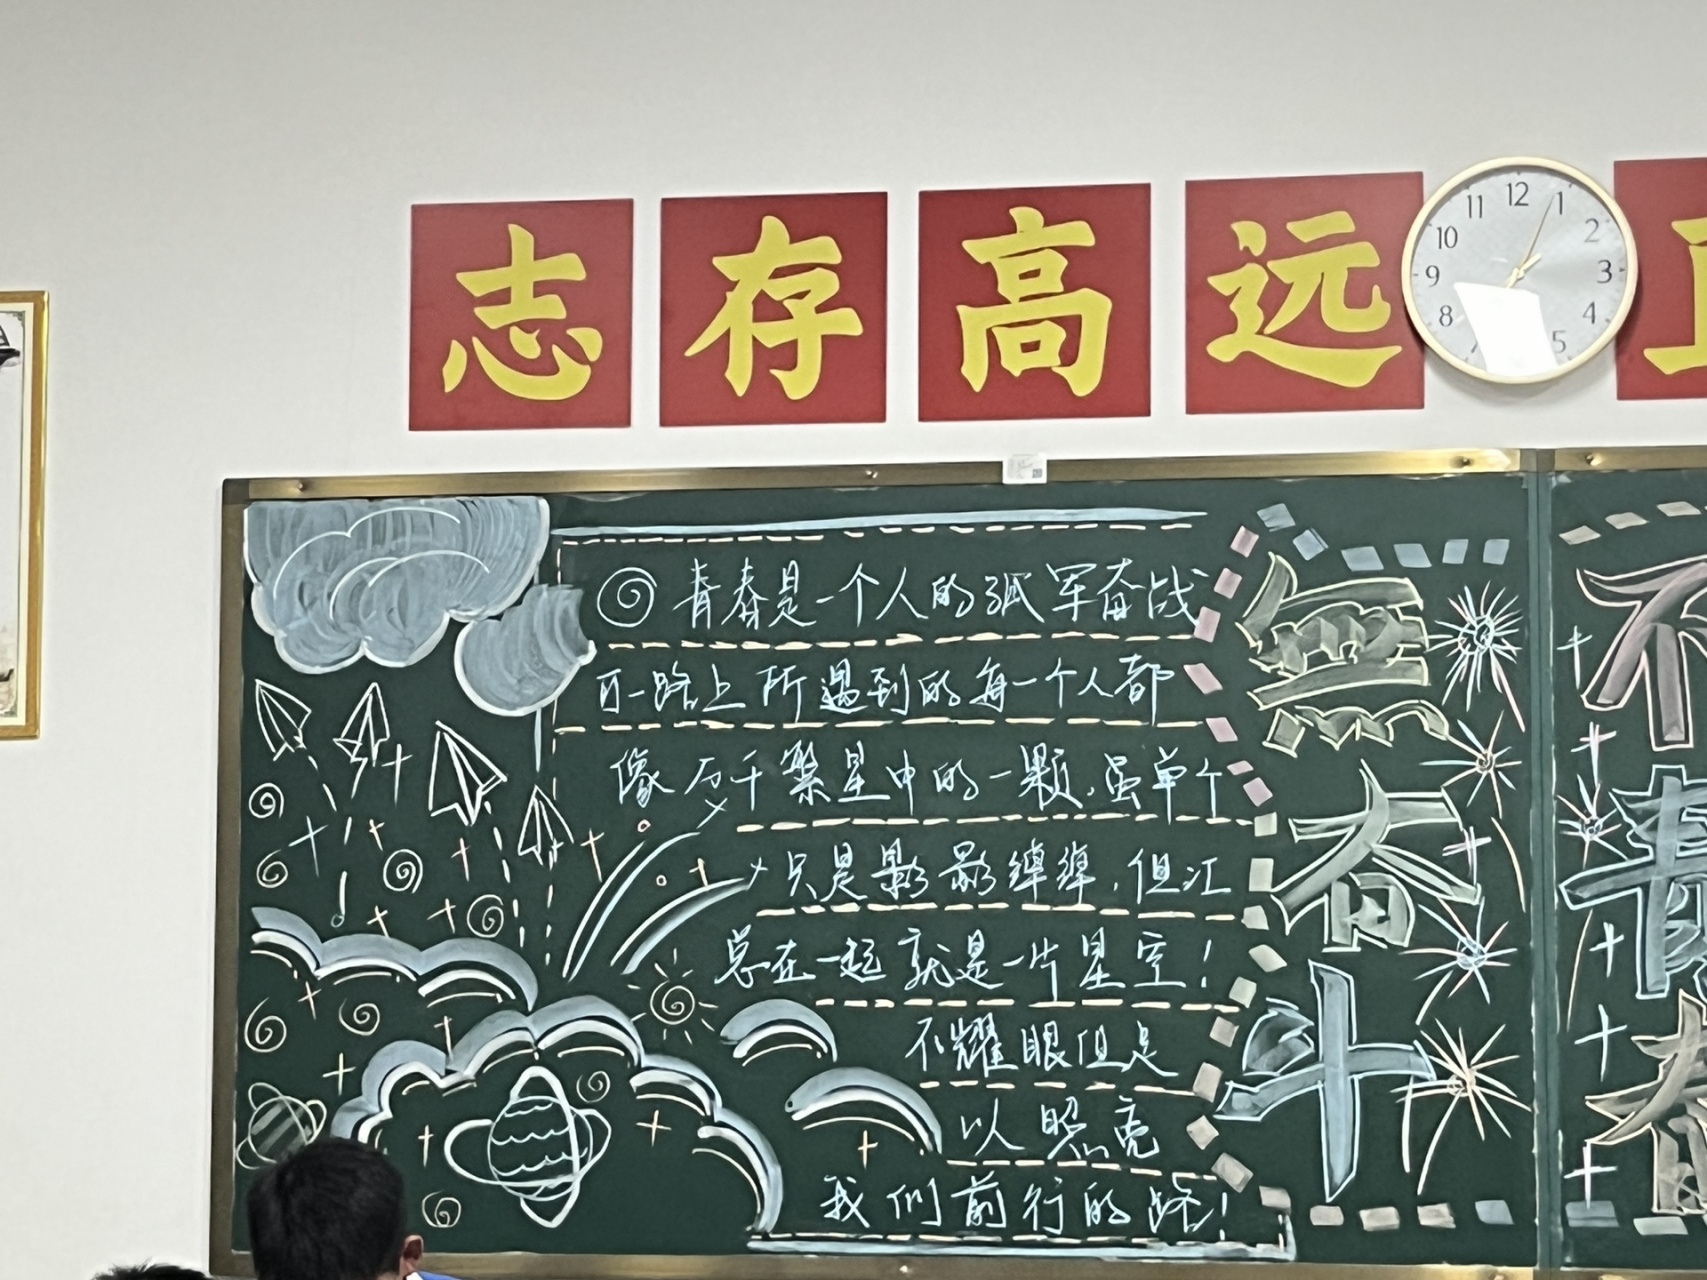 志存高远
11 12 1
10 2
9 3
8 4
5
青春是一个人的孤军奋战
可一路上所遇到的每一个人都
像万千繁星中的一颗,虽单个
只是影影绰绰,但汇
总在一起就是一片星空!
不耀眼但足
以照亮
我们前行的路!
奋斗
不
青
春